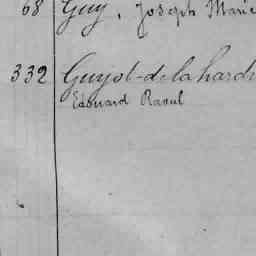 68 Guy, Joseph Marie
332 Guyot-de la hard
Edouard Raoul